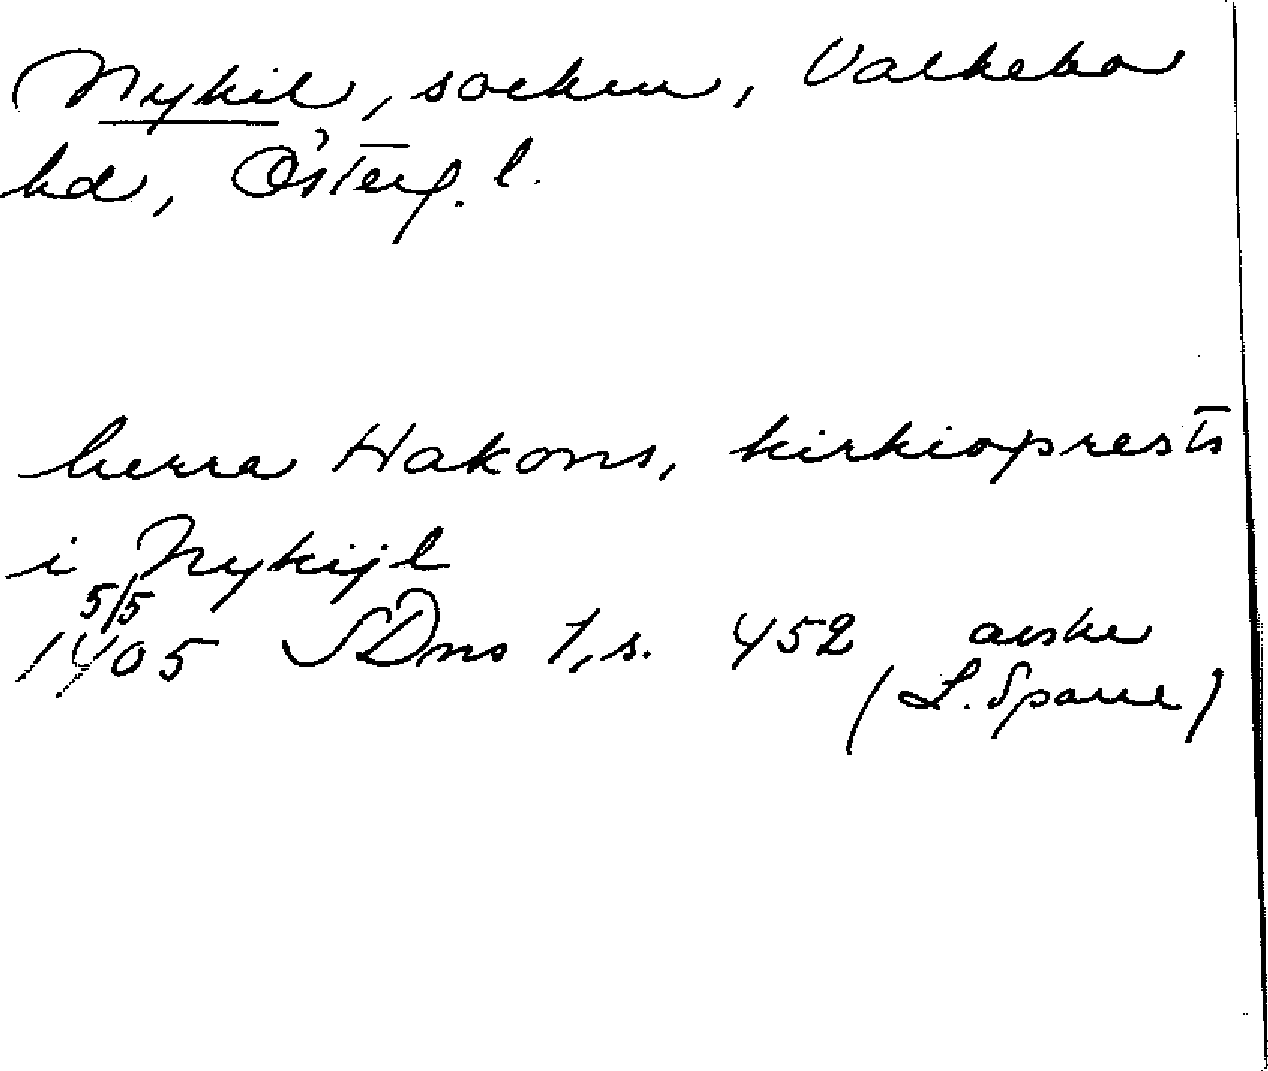 Nykil, socken, Valkebo
hd, Österg. l.
herra Hakons, kirkioprests
i Nykijl
5/5
1405 SDns 1, s. 452 avskr
(L. Sparre)